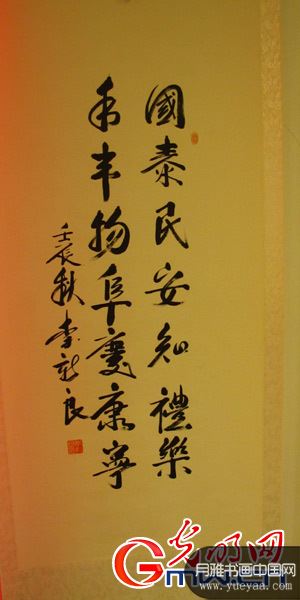 國泰民安知禮樂
年丰物阜慶康寧
壬辰秋李新良
光明网
Gmw.cn
月雅书画中国网
www.yueyaa.com